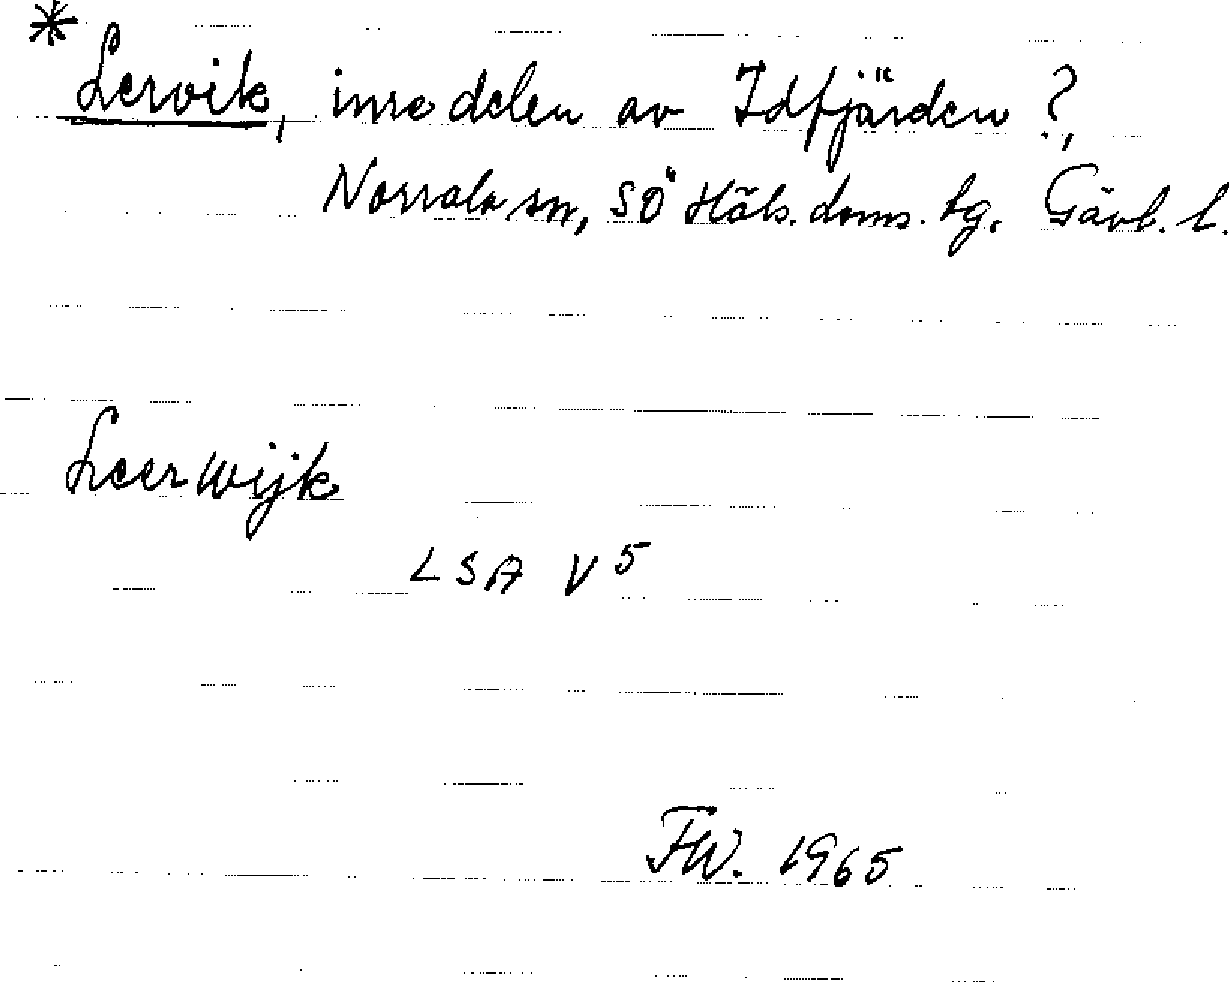 * Lervik, inre delen av Idfjärden ?,
Norrala sn, SÖ Häls. doms. tg. Gävl. l.
Leerwijk
LSA V 5
FW. 1965